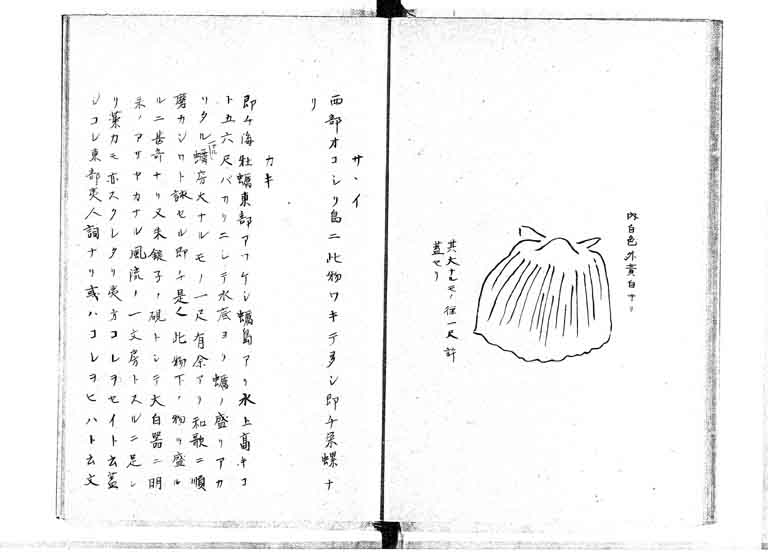 内白色外黄白ナリ
其大ナルモノ径一尺許
蓋セリ
サヽイ
西部オコシリ島ニ此物ワキテ多シ即チ栄螺ナ
リ
カキ
即チ海牡蠣東部アツケシ蠣島アリ水上高キコ
ト五六尺バカリニシテ水底ヨリ蠣ノ盛リアカ
リタル蠣房大ナルモノ一尺有余アリ和歌ニ順
磨カシワト詠セル即チ是 此物下ノ物ヲ盛ル
ルニ甚奇ナリ又朱錠子ノ硯トシテ大白器ニ明
朱ノアサヤカナル風流ノ一文房トスルニ足レ
リ薬力モ亦スクレタリ夷方コレヲセイト云蓋
シコレ東部夷人詞ナリ或ハコレヲヒハト云文